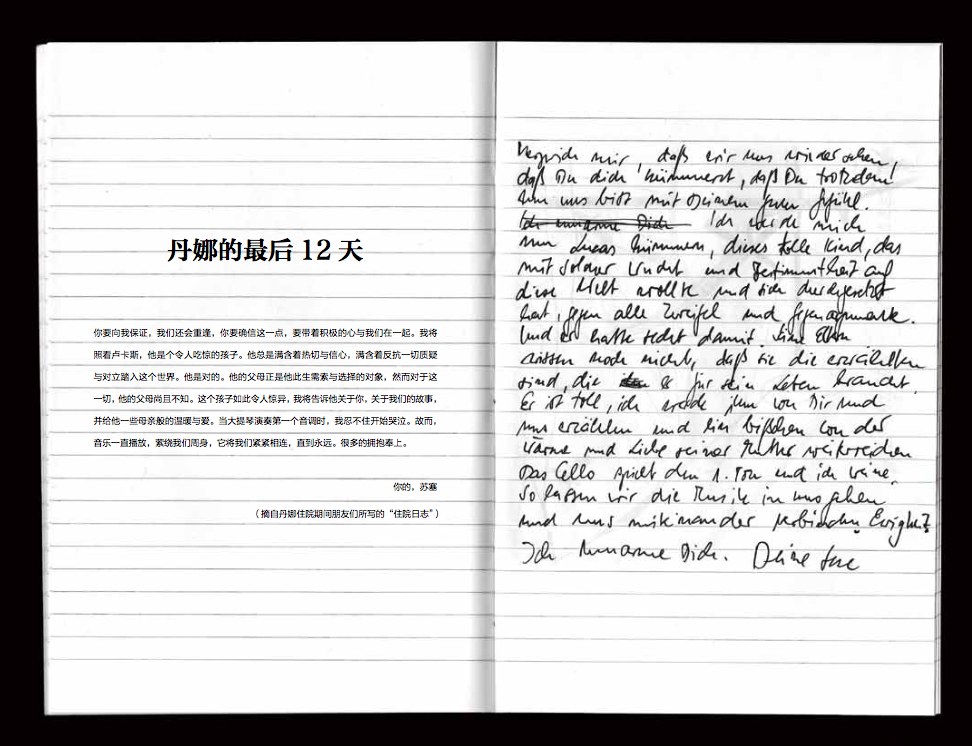 丹娜的最后 12 天
你要向我保证，我们还会重逢，你要确信这一点，要带着积极的心与我们在一起。我将
照看卢卡斯，他是个令人吃惊的孩子。他总是满含着热切与信心，满含着反抗一切质疑
与对立踏入这个世界。他是对的。他的父母正是他此生需索与选择的对象，然而对于这
一切，他的父母尚且不知。这个孩子如此令人惊异，我将告诉他关于你，关于我们的故事，
并给他一些母亲般的温暖与爱。当大提琴演奏第一个音调时，我忍不住开始哭泣。故而，
音乐一直播放，萦绕我们周身，它将我们紧紧相连，直到永远。很多的拥抱奉上。
你的，苏塞
（摘自丹娜住院期间朋友们所写的“住院日志”）
Versprich mir, daß wir uns wiedersehen,
daß Du dich kümmerst, daß Du trotzdem
um uns bist mit Deinem guten Gefühl.
Ich umarme Dich Ich werde mich
um Lucas kümmern, dieses tolle Kind, das
mit solcher und Bestimmtheit auf
diese Welt wollte und sich durchgesetzt
hat, gegen alle Zweifel und
Und er hatte recht damit. Seine Eltern
wissen noch nicht, daß sie die erwählten
sind, die er für sein Leben braucht.
Er ist toll, ich werde ihm von Dir und
uns erzählen und ein bißchen von der
Wärme und Liebe seiner Mutter weiterreichen
Das Cello spielt den 1. Ton und ich weine.
So lassen wir die Musik in uns gehen
und uns miteinander verbinden. Ewigkeit.
Ich umarme Dich. Deine Suse